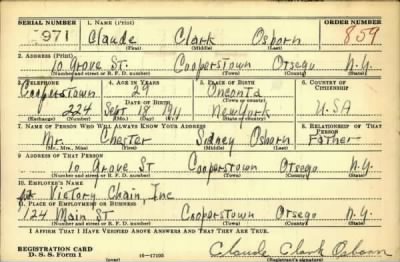 SERIAL NUMBER 1. NAME (Print) ORDER NUMBER
971 Claude Clark Osborn 859
(First) (Middle) (Last)
2. ADDRESS (Print)
10 Grove St. Cooperstown Otsego N.Y.
(Number and street or R. F. D. number) (Town) (County) (State)
3. TELEPHONE 4. AGE IN YEARS 5. PLACE OF BIRTH 6. COUNTRY OF CITIZENSHIP
Cooperstown 29 Oneonta
DATE OF BIRTH (Town or county)
224 Sept 18 1911 New York U.S.A
(Exchange) (Number) (Mo.) (Day) (Yr.) (State or country)
7. NAME OF PERSON WHO WILL ALWAYS KNOW YOUR ADDRESS 8. RELATIONSHIP OF THAT PERSON
Mr. Chester Sidney Osborn Father
(Mr., Mrs., Miss) (First) (Middle) (Last)
9. ADDRESS OF THAT PERSON
10 Grove St Cooperstown Otsego N.Y.
(Number and street or R. F. D. number) (Town) (County) (State)
10. EMPLOYER'S NAME
Victory Chain, Inc
11. PLACE OF EMPLOYMENT OR BUSINESS
124 Main St Cooperstown Otsego N.Y.
(Number and street or R. F. D. number) (Town) (County) (State)
I AFFIRM THAT I HAVE VERIFIED ABOVE ANSWERS AND THAT THEY ARE TRUE.
REGISTRATION CARD
D. S. S. Form 1 16-17105 Claude Clark Osborn